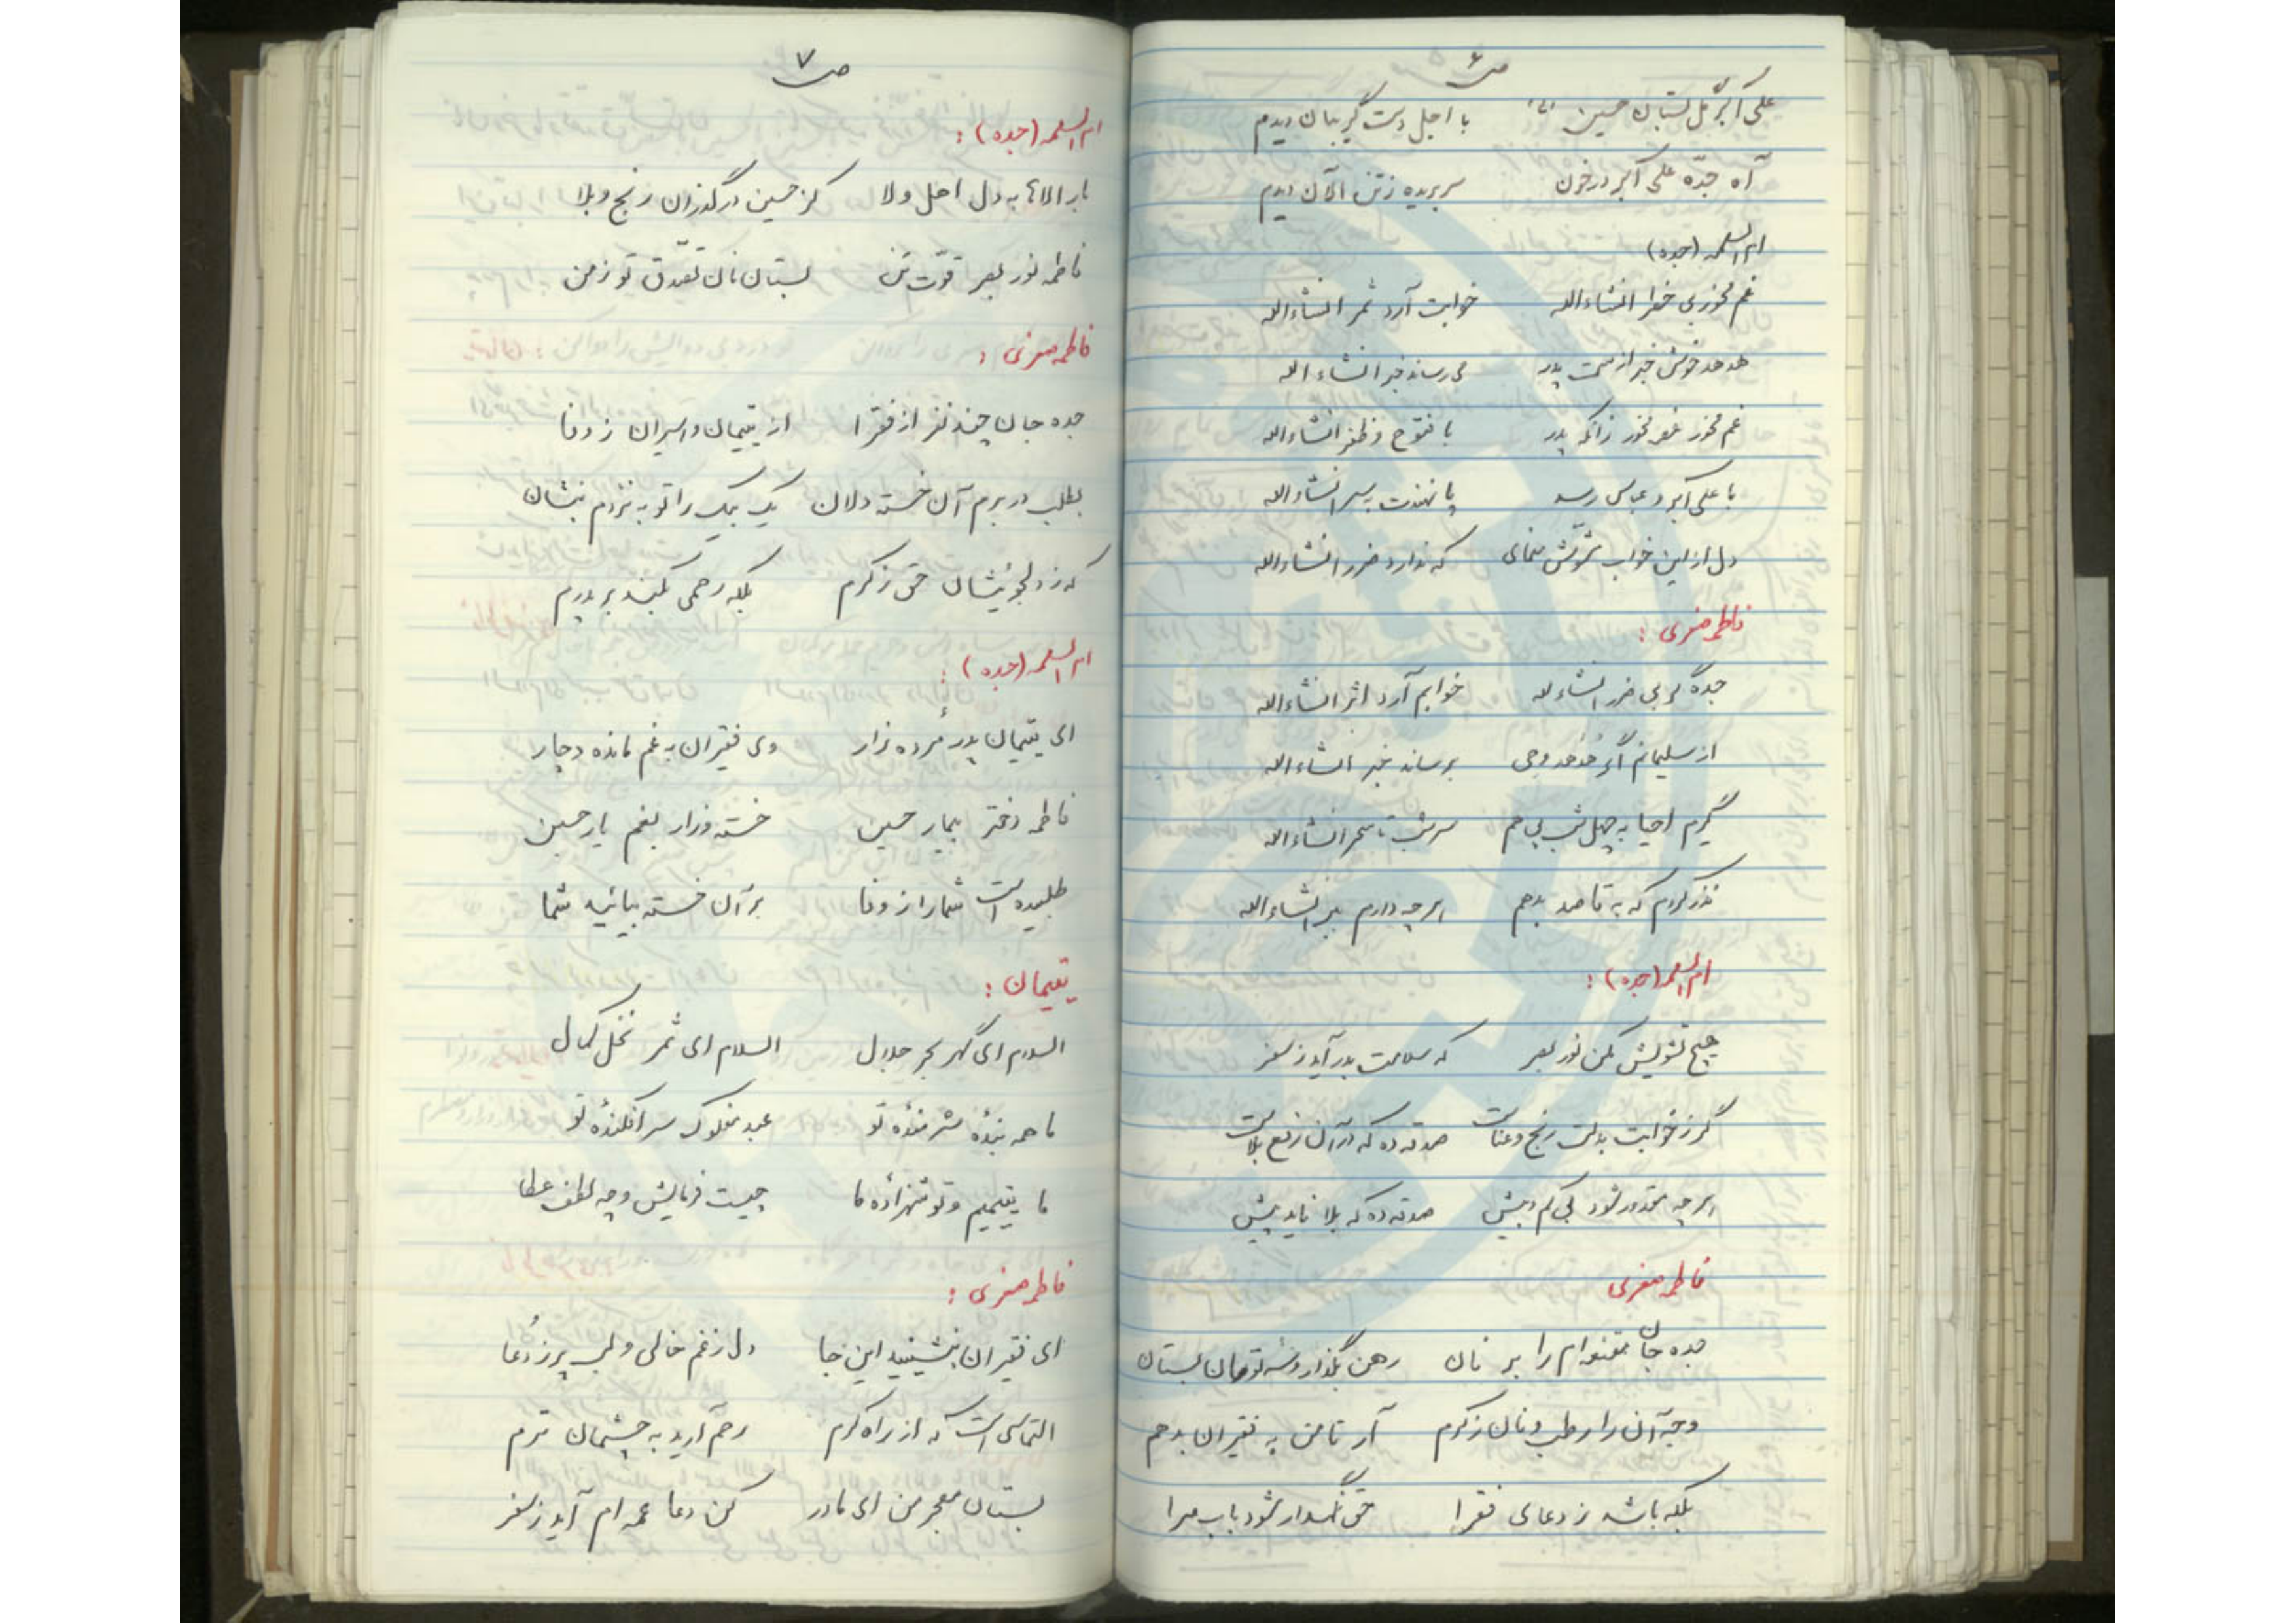 ص ۶
علی اکبر گل بستان حسین (ع) با اجل دست گریبان دیدم
آه جدّه علی اکبر در خون سر بریده ز تن الآن دیدم
ام السلمه (جده)
غم مخور بی خطر انشاءالله خوابت آرد ثمر انشاءالله
هدهد خوش خبر از سمت پدر می رساند خبر انشاءالله
غم مخور غم مخور زانکه پدر با فتوح و ظفر انشاءالله
با علی اکبر و عباس رسد پا نهندت بسر انشاءالله
دل از این خواب مشوّش منمای که ندارد ضرر انشاءالله
فاطمه صغری :
جده گو بی ضرر انشاءالله خوابم آرد اثر انشاءالله
از سلیمانم اگر هُدهُد وحی برساند خبر انشاءالله
گیرم احیا به چهل شب پی هم سر شب تا سحر انشاءالله
نذر کردم که به قاصد بدهم هر چه دارم ببر انشاءالله
ام السلمه (جده) :
هیچ تشویش مکن نور بصر که سلامت پدر آید ز سفر
گر ز خوابت بدلت رنج و عناست صدقه ده که در آن رفع بلاست
هر چه مقدور شود بی کم و بیش صدقه ده که بلا ناید پیش
فاطمه صغری
جده جان مقنعه ام را بر نان رهن بگذار و تو نان بستان
وجه آن را رطب و نان ز کرم آر تا من به فقیران بدهم
بلکه باشد ز دعای فقرا حق نگهدار شود باب مرا
ص ۷
ام السلمه (جده) :
بار الاها به دل اهل ولا کز حسین درگذران رنج و بلا
فاطمه نور بصر قوّت تن بستان نان تصدّق تو ز من
فاطمه صغری :
جده جان چند نفر از فقرا از یتیمان و اسیران ز وفا
بطلب در برم آن خسته دلان یک بیک را تو به نزدم بنشان
که ز دلجوئیشان حق ز کرم بلکه رحمی بکند بر پدرم
ام السلمه (جده) :
ای یتیمان پدر مُرده زار وی فقیران به غم مانده دچار
فاطمه دختر بیمار حسین خسته و زار بغم یار حسین
طلبیده است شما را ز وفا بر آن خسته بیائید شما
یتیمان :
السلام ای گهر بحر جلال السلام ای ثمر نخل کمال
ما همه بندهٔ شرمندهٔ تو عبد مفلوک سرافکندهٔ تو
ما یتیمیم و تو شهزادهٔ ما چیست فرمایش و چه لطف عطا
فاطمه صغری :
ای فقیران بنشینید این جا دل ز غم خالی و لب پر ز دُعا
التماس است که از راه کرم رحم آرید به چشمان ترم
بستان معجر من ای مادر کن دعا عمه ام آید ز سفر